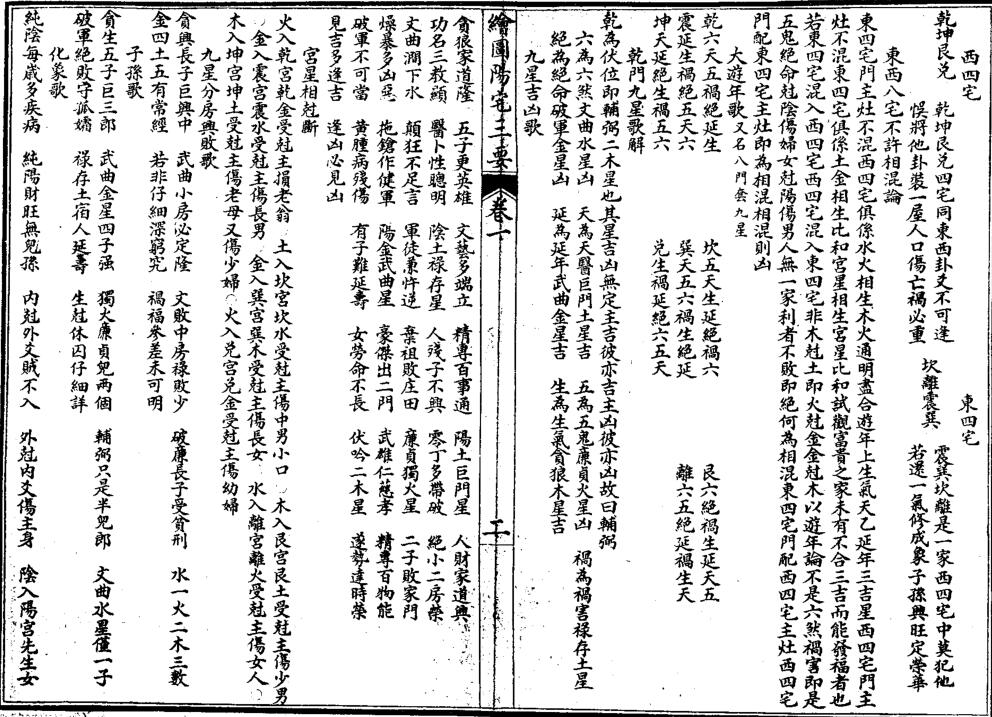 西四宅
乾坤艮兌
乾坤艮兌四宅同東西卦爻不可逢
悞將他卦裝一屋人口傷亡禍必重
東四宅
坎離震巽
震巽坎離是一家西四宅中莫犯他
若還一氣修成象子孫興旺定榮華
東西八宅不許相混論
東四宅門主灶不混西四宅俱係水火相生木火通明盡合遊年上生氣天乙延年三吉星西四宅門主
灶不混東四宅俱係土金相生比和宮星相生宮星比和試觀富貴之家未有不合三吉而能發福者也
若東四宅混入西四宅西四宅混入東四宅非木尅土即火尅金金尅木以遊年論不是六煞禍害即是
五鬼絕命尅陰傷婦女尅陽傷男人無一家利者不敗即絕何為相混東四宅門配西四宅主灶西四宅
門配東四宅主灶即為相混相混則凶
大遊年歌又名八門套九星
乾六天五禍絕延生　坎五天生延絕禍六　艮六絕禍生延天五
震延生禍絕五天六　巽天五六禍生絕延　離六五絕延禍生天
坤天延絕生禍五六　兌生禍延絕六五天
乾門九星歌解
乾為伏位即輔弼二木星也其星吉凶無定主吉彼亦吉主凶彼亦凶故曰輔弼
六為六煞文曲水星凶　天為天醫巨門土星吉　五為五鬼廉貞火星凶　禍為禍害祿存土星
絕為絕命破軍金星凶　延為延年武曲金星吉　生為生氣貪狼木星吉
九星吉凶歌
繪圖陽宅三要　卷一　二
貪狼家道隆　五子更英雄　文藝多端立　精專百事通　陽土巨門星　人財家道興
功名三教顯　醫卜性聰明　陰土祿存星　人殘子不興　零丁多帶破　絕小二房榮
文曲潤下水　顛狂不足言　軍徒兼忤逆　棄祖敗庄田　廉貞獨火星　二子敗家門
燥暴多凶惡　拖鎗作健軍　陽金武曲星　豪傑出二門　武雄仁慈孝　精專百物能
破軍不可當　黃腫病殘傷　有子難延壽　女勞命不長　伏吟二木星　遂勢達時榮
見吉多逢吉　逢凶必見凶
宮星相尅斷
火入乾宮乾金受尅主損老翁　土入坎宮坎水受尅主傷中男小口　木入艮宮艮土受尅主傷少男
金入震宮震水受尅主傷長男　金入巽宮巽木受尅主傷長女　水入離宮離火受尅主傷女人
木入坤宮坤土受尅主傷老母又傷少婦　火入兌宮兌金受尅主傷幼婦
九星分房興敗歌
貪興長子巨興中　武曲小房必定隆　文敗中房祿敗少　破廉長子受貧刑　水一火二木三數
金四土五有常經　若非仔細深窮究　禍福參差未可明
子孫歌
貪生五子巨三郎　武曲金星四子强　獨火廉貞兒兩個　輔弼只是半兒郎　文曲水星僅一子
破軍絕敗守孤孀　祿存土宿人延壽　生尅休囚仔細詳
化象歌
純陰每歲多疾病　純陽財旺無兒孫　內尅外爻賊不入　外尅內爻傷主身　陰入陽宮先生女